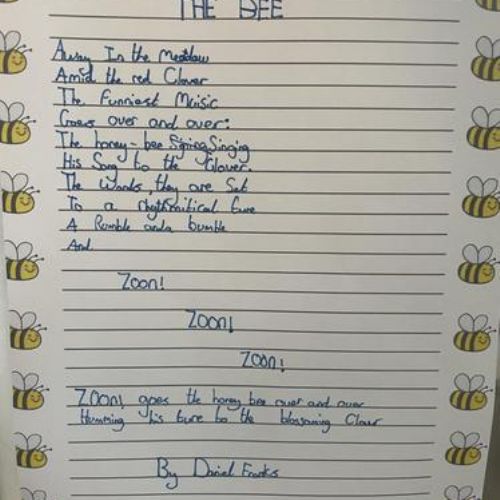 THE BEE
Away In the Meddaw
Amid the red Clover
The Funniest Muisic
Goes over and over:
The honey-bee Singing
His Song to the Clover.
The Words, they are Set
To a rhythmitical tune
A Rumble and a bumble
And
Zoon!
Zoon!
Zoon!
Zoon! goes the honey bee over and over
Humming his tune to the blossoming Clover
By Daniel Franks